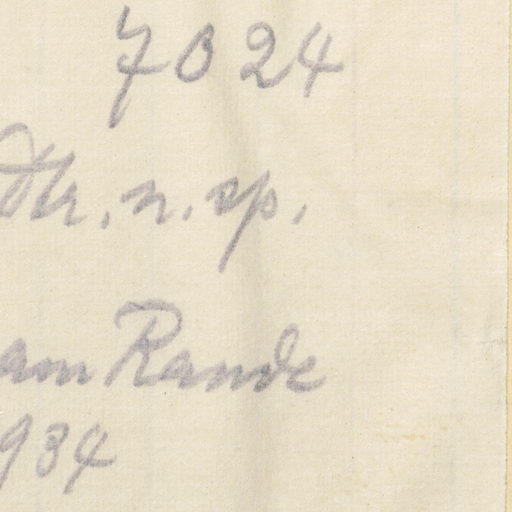 7024
Dtr. n. sp.
am Rande
934